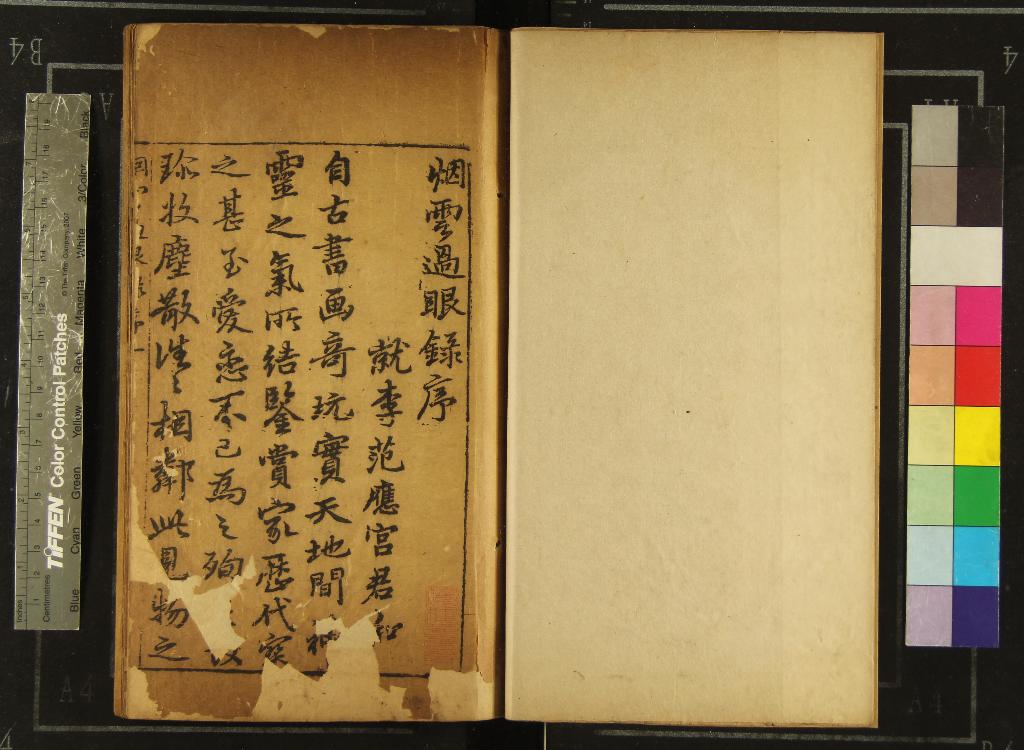 烟雲過眼錄序
就李范應宮君和
自古書画奇玩實天地間神
靈之氣所結鑒賞家歷代寶
之甚至愛戀不已為之殉
珎收塵散往〻相鄰此見物之
B4
A4
TIFFEN Color Control Patches
© The Tiffen Company, 2007
Inches
Centimetres
Blue
Cyan
Green
Yellow
Red
Magenta
White
3/Color
Black